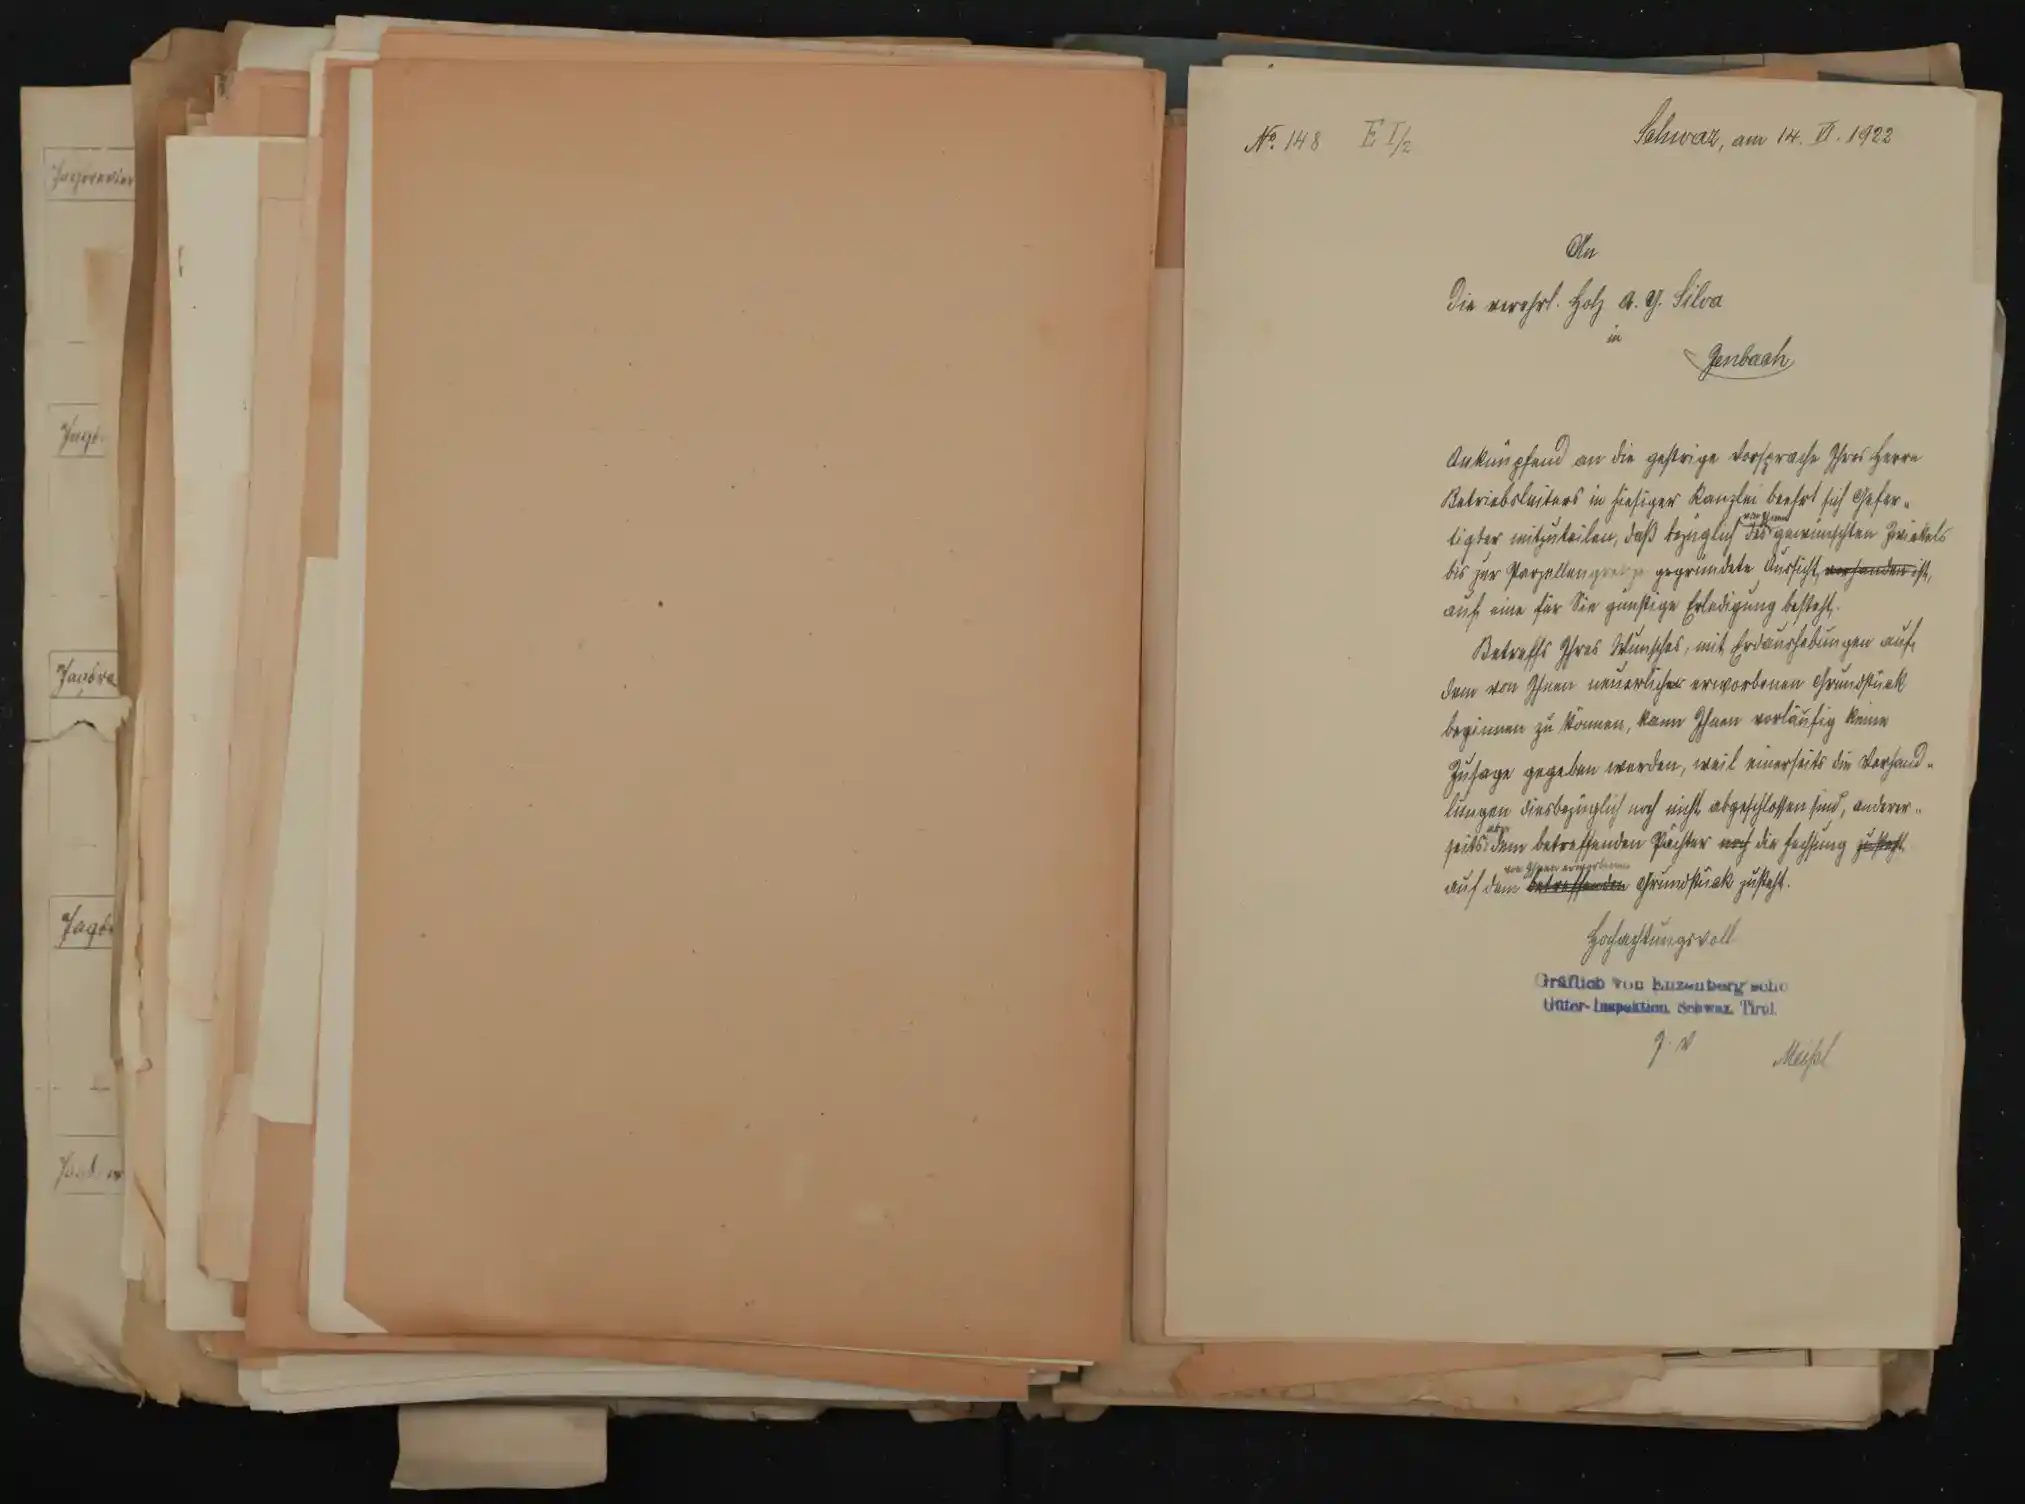 Jagdrevier
Jagd
Jagdre
Jagdr
No. 148 E I/2 Schwaz, am 14. VI. 1922
An
Die verehrl. Holz A. G. Silva
in
Jenbach
Anknüpfend an die gestrige Vorsprache Ihres Herrn
Betriebsleiters in hiesiger Kanzlei beehrt sich Gefer-
tigter mitzuteilen, daß bezüglich des von Ihnen gewünschten Zwickels
bis zur Parzellengrenze gegründete Aussicht, vorhanden ist,
auf eine für Sie günstige Erledigung besteht.
Betreffs Ihres Wunsches, mit Erdaushebungen auf
dem von Ihnen neuerlich erworbenen Grundstück
beginnen zu können, kann Ihnen vorläufig keine
Zusage gegeben werden, weil einerseits die Verhand-
lungen diesbezüglich noch nicht abgeschlossen sind, anderer-
seits aber dem betreffenden Pächter noch die Fechsung zusteht
auf dem betreffenden von Ihnen erworbenen Grundstück zusteht.
Hochachtungsvoll
Gräflich von Enzenberg'sche
Güter-Inspektion, Schwaz, Tirol.
J. V.